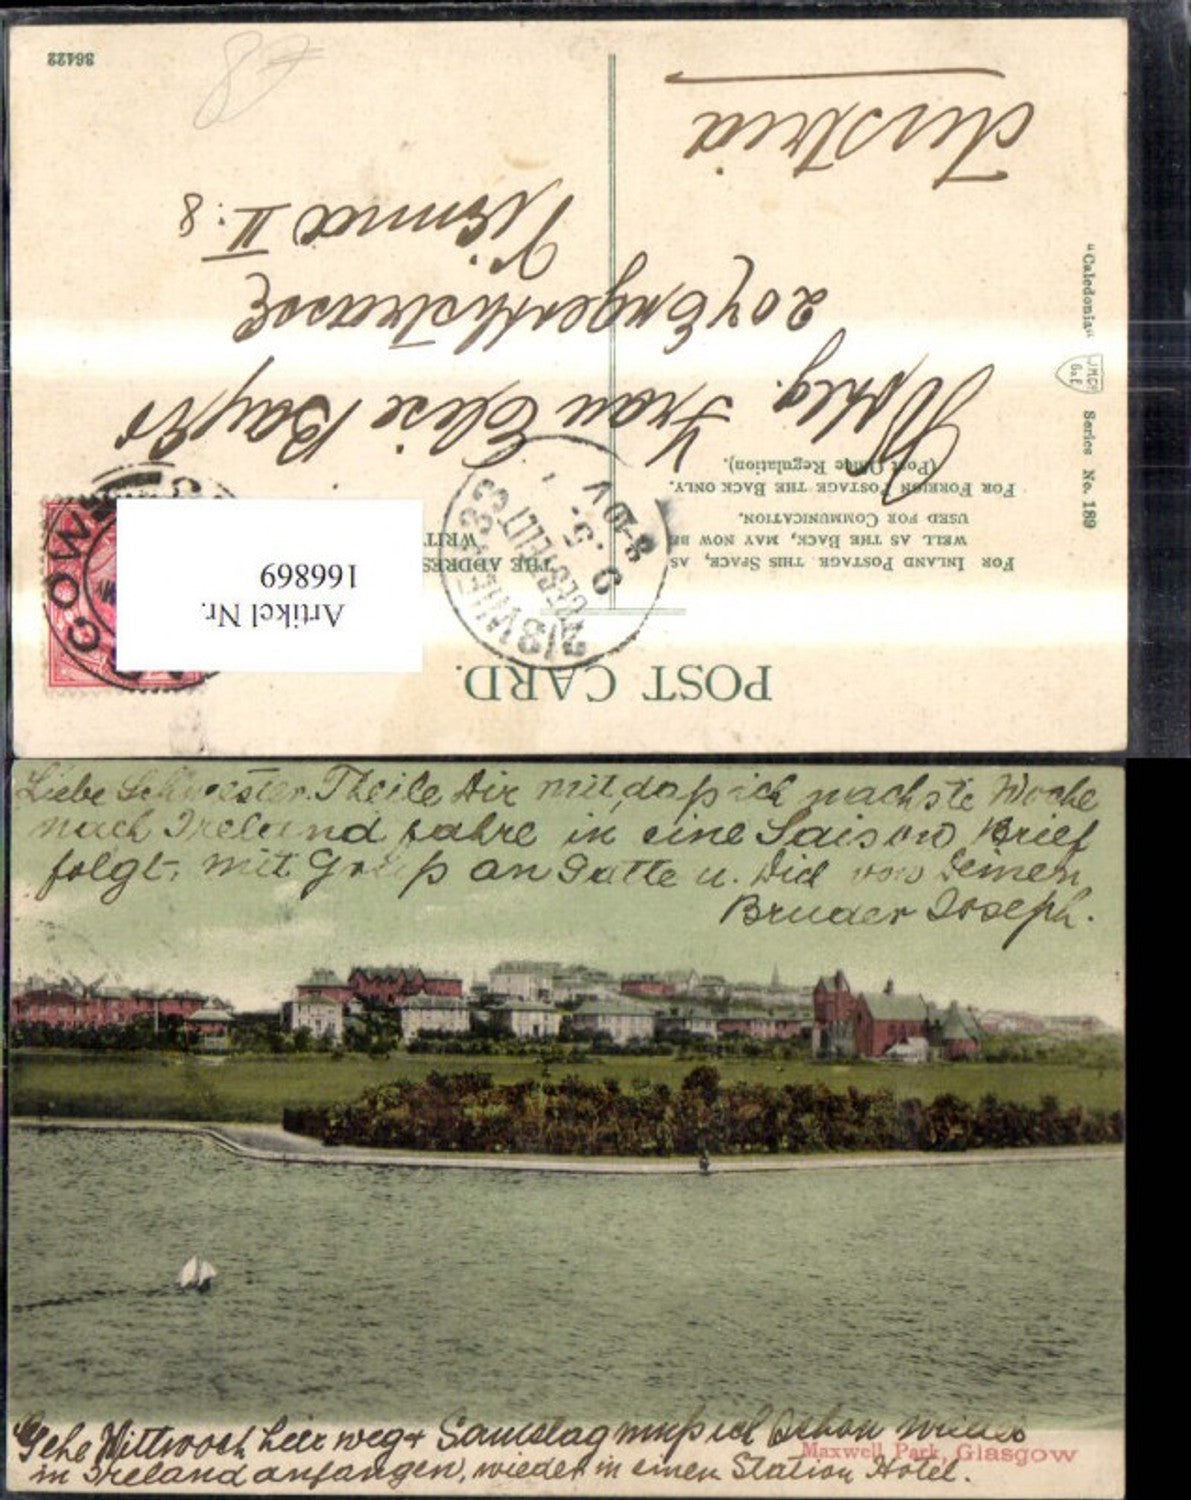 POST CARD.
FOR INLAND POSTAGE THIS SPACE, AS
WELL AS THE BACK, MAY NOW BE
USED FOR COMMUNICATION.
FOR FOREIGN POSTAGE THE BACK ONLY.
(Post Office Regulation).
THE ADDRES
WRIT
Artikel Nr.
166869
Wohlg. Frau Elise
207 Engerthstrasse
Vienna II: 8
Austria
36422
"Caledonia" Series No. 189
Liebe Schwester. Theile Dir mit, daß ich nachste Woche
nach Ireland fahre in eine Saison Brief
folgt, mit Gruß an Gatte u. Dich von Deinem
Bruder Joseph.
Gehe Mittwoch hier weg + Samstag muß ich schon wieder
in Ireland anfangen, wieder in einen Station Hotel.
Maxwell Park, Glasgow